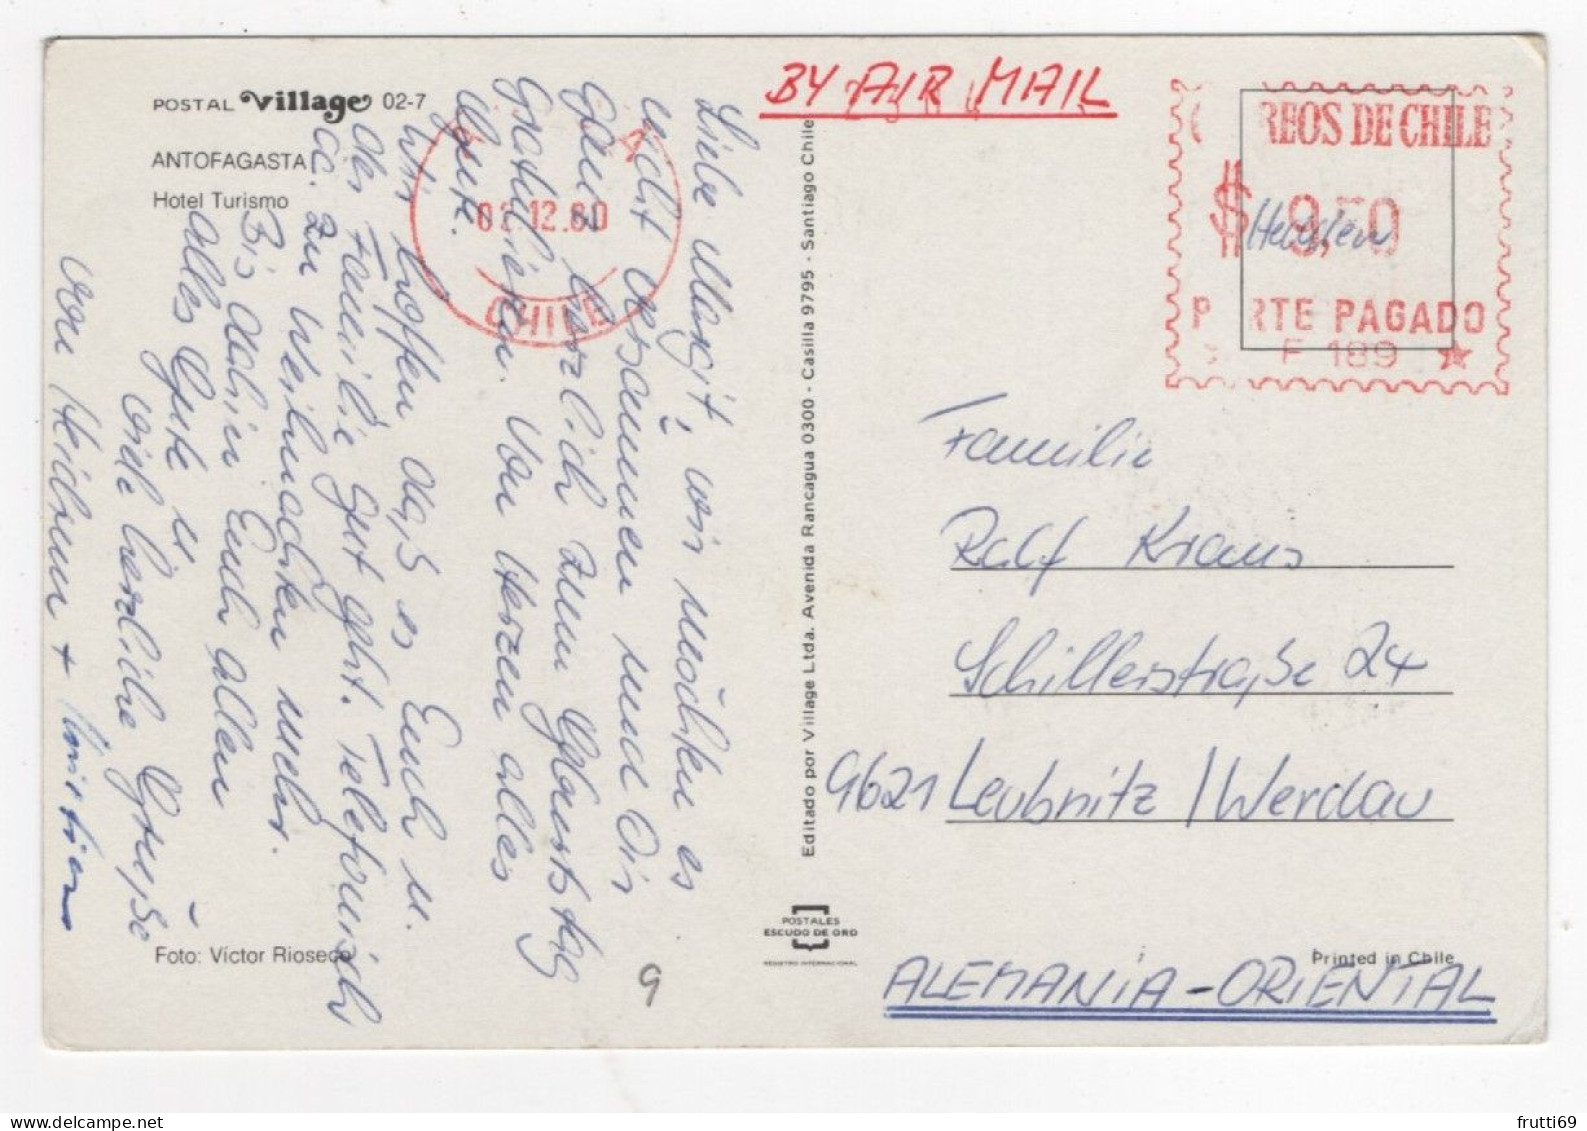 POSTAL Village 02-7
ANTOFAGASTA
Hotel Turismo
02.12.80
CHILE
Liebe Margit, wir möchten es
nicht versäumen und Dir
ganz herzlich zum Geburtstag
Gratulieren. Von Herzen alles
Gute.
Wir hoffen daß es Euch u.
der Familie gut geht. Telefonisch
zu Weihnachten mehr.
Bis dahin Euch allen
alles Gute u
viele herzliche Grüße
von Heidrun + Christian
Foto: Víctor Rioseco
9
Editado por Village Ltda. Avenida Rancagua 0300 - Casilla 9795 - Santiago Chile
POSTALES
ESCUDO DE ORO
REGISTRO INTERNACIONAL
BY AIR MAIL
REOS DE CHILE
$ 9,50
P RTE PAGADO
F 189
Familie
Ralf Kraus
Schillerstraße 24
9621 Leubnitz / Werdau
Printed in Chile
ALEMANIA - ORIENTAL
frutti69